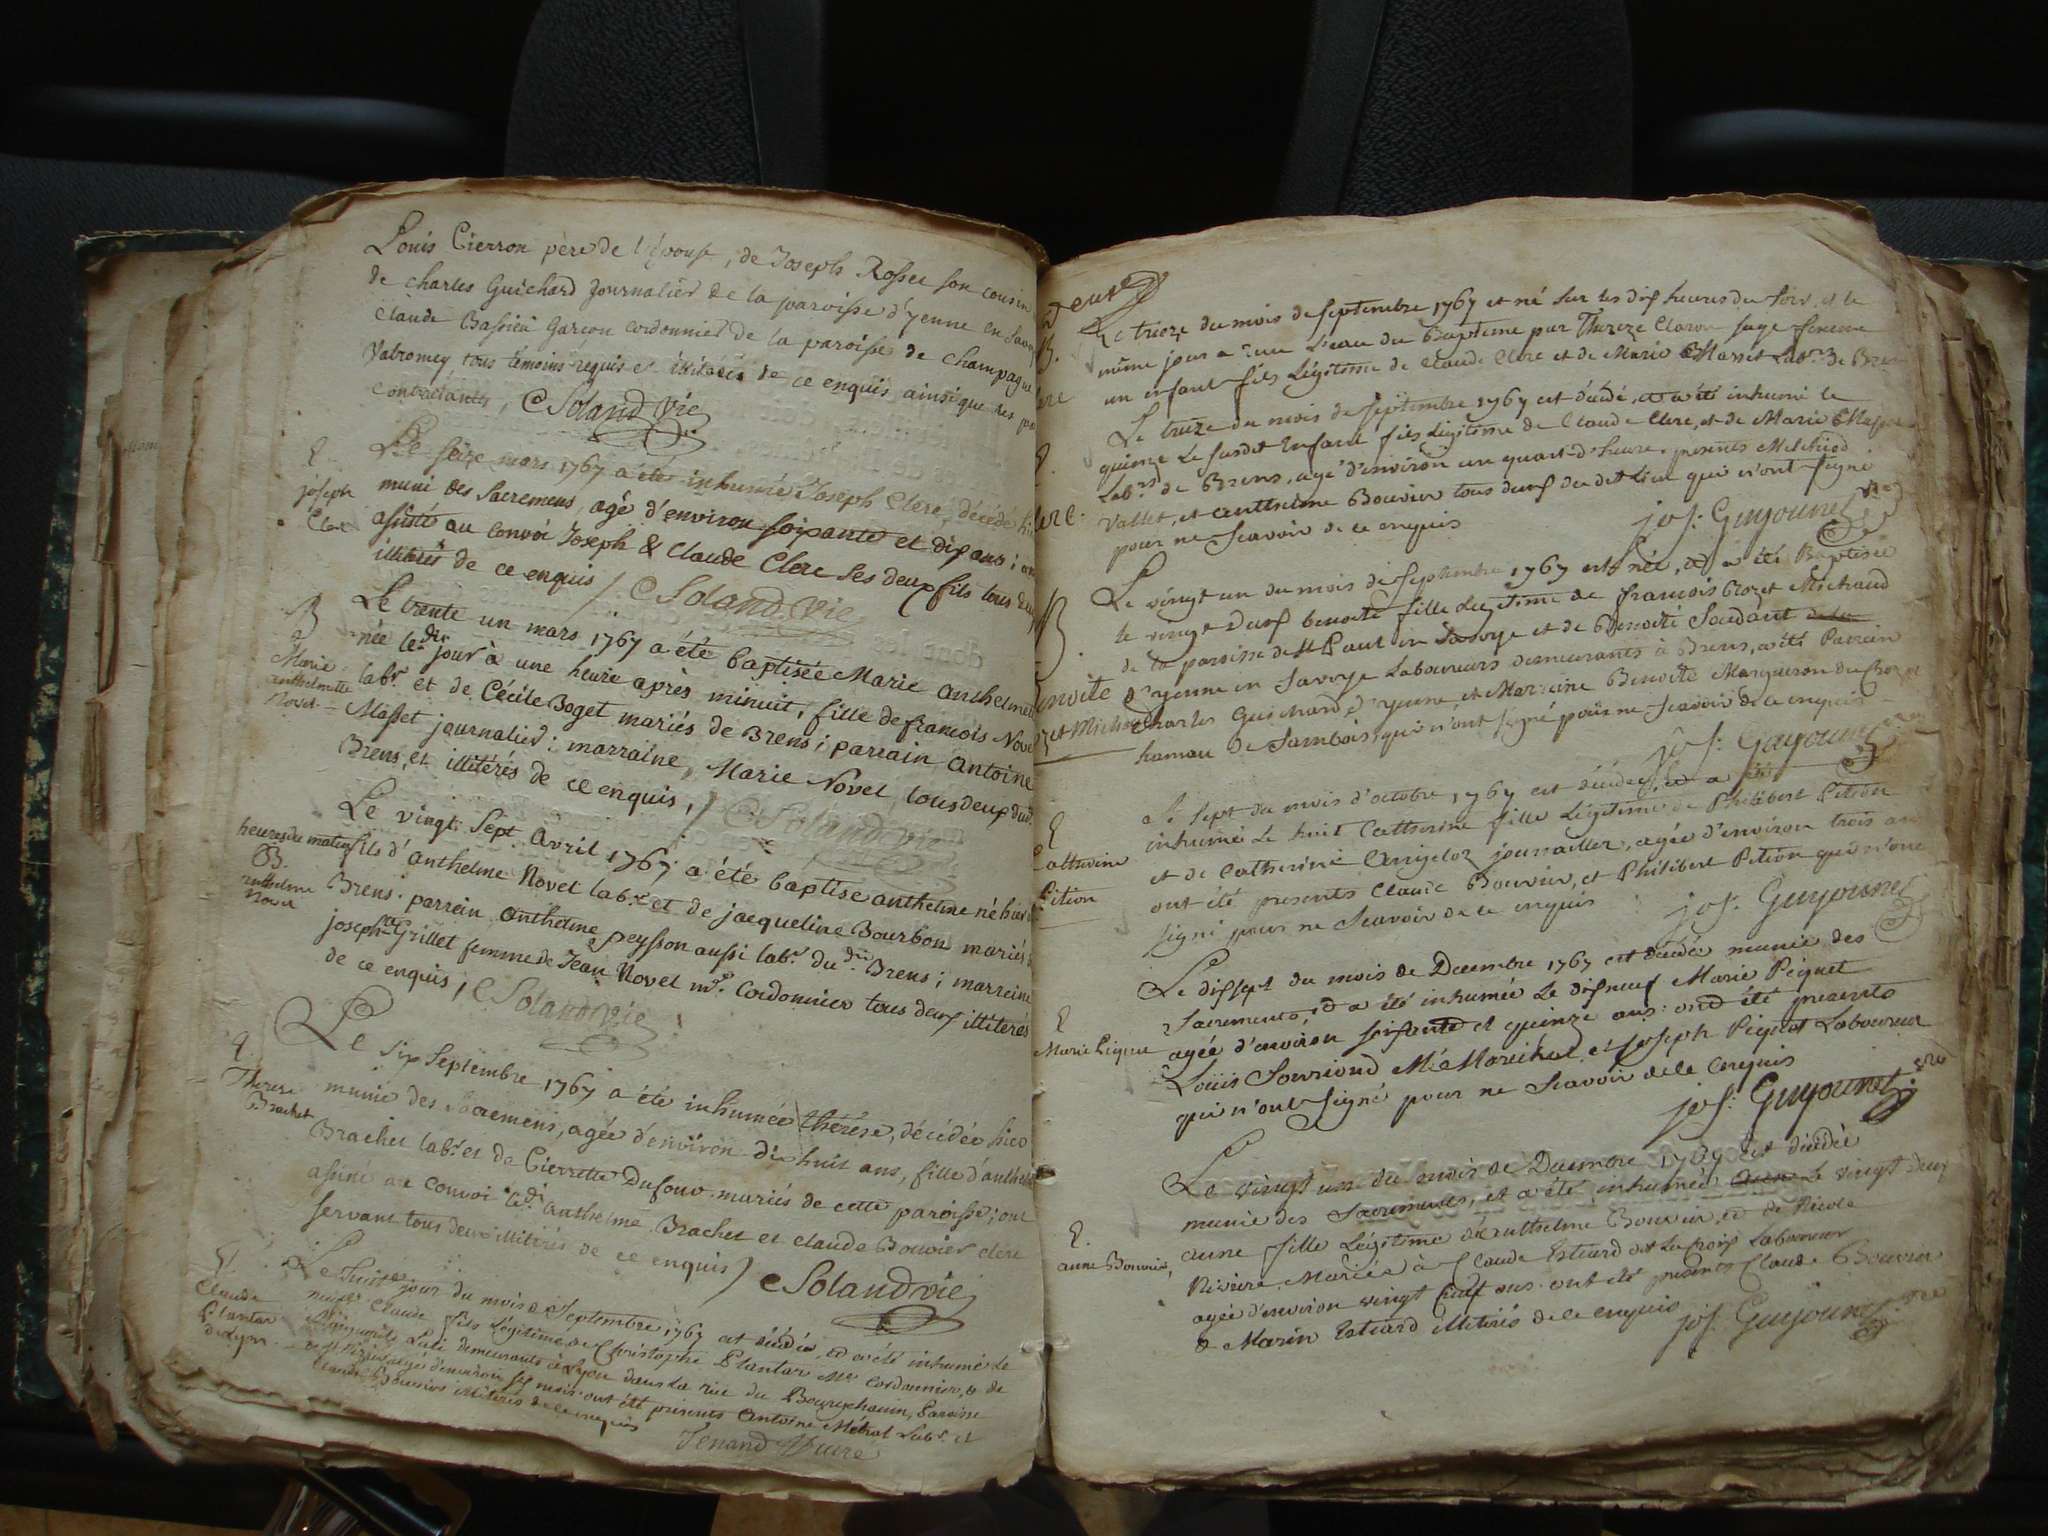 Louis Pierron père de l'épouse, de Joseph Rosser son cousin
de Charles Guichard Journalier de la paroisse d'yenne en Savoy
Claude Bassieu Garçon Cordonnier de la paroisse de Champagne
Valromey, tous témoins requis et illitérés de ce enquis ainsi que les
contractants, Soland vic
E
joseph
Clerc
Le seize mars 1767 a été inhumé Joseph Clerc, décédé hi
muni des Sacremens, agé d'environ soixante et dix ans;
assisté au convoi Joseph & Claude Clerc ses deux fils tous deux
illitérés de ce enquis / Soland vic
B
Marie
anthelmette
Novel
Le trente un mars 1767 a été baptisée Marie Anthelmett
née led.t jour à une heure après minuit, fille de francois Nove
lab.r et de Cécile Boget mariés de Brens; parrain Antoine
Masset journalier; marraine, Marie Novel, tous deux dud.
Brens, et illitérés de ce enquis, / Soland vic
heures du matin
B.
anthelme
Novel
Le vingt Sept Avril 1767 a été baptisé anthelme né hier
fils d'Anthelme Novel lab.r et de jacqueline Bourbon mariés
Brens. parrein Anthelme peysson aussi lab.r du d.it Brens; marreine
Josephe Grillet femme de Jean Novel m.e Cordonnier tous deux illiterés
de ce enquis, / Soland vic
E.
Therese
Brachet
Le six Septembre 1767 a été inhumée thérèse, décédée hier
munie des Sacremens, agée d'environ dixhuit ans, fille d'anthelme
Brachet lab.r et de Pierrette Dufour mariés de cette paroisse; ont
assisté au convoi led.t Anthelme Brachet et Claude Bouvier clerc
servant tous deux illitérés de ce enquis / Soland vic
E
Claude
Plantar
de Lyon
Le huit jour du mois de Septembre 1767 est décédé, et a été inhumé le
neuf Claude fils Légitime de Christophe Plantar M.e Cordonnier, & de
demeurants à Lyon dans la rue du Bourgchanin, Paroisse
de St Nizier, agé d'environ six mois. ont été présents Antoine Métral Lab.r et
Claude Bouvier illitérés de le enquis
Tenand Vicaire
B.
Le treize du mois de septembre 1767 est né sur les dix heures du soir, et le
même jour a reçu l'eau du Baptême par Thereze Claron sage-femme
un enfant fils Légitime de Claude Clerc et de Marie Masset Lab.r de Bren
E.
Clerc.
Le treize du mois de septembre 1767 est décédé, et a été inhumé le
quinze le susdit Enfant fils Légitime de Claude Clerc, et de Marie Masset
Lab.rs de Brens, agé d'environ un quart-d'heure. présents Melchiod
Vallet, et anthelme Bouvier tous deux du dit Lieu qui n'ont signé
pour ne Scavoir de ce enquis jos: Guyounet
B.
Benoite
et Michaud
Le vingt un du mois de Septembre 1767 est née, et a été Baptisée
le vingt Deux benoite fille Légitime de francois Crozet Michaud
de la paroisse de St Paul en Savoye et de Benoite Soudant
d'yenne en Savoye Laboureurs demeurants à Brens, a été Parrein
Charles Guichard d'yenne, et Marreine Benoite Marqueron du Crozet
hameau de qui n'ont signé pour ne scavoir de le enquis
jos: Guyounet
E
Catherine
Pition
Le sept du mois d'octobre 1767 est décédée, et a été
inhumée le huit Catherine fille Légitime de Philibert Pition
et de Catherine journalier, agée d'environ trois an
ont été presents Claude Bouvier, et Philibert Pition qui n'ont
signé pour ne scavoir de le enquis jos: Guyounet
E
Marie Piquet
Le dixsept du mois de Décembre 1767 est décédée munie des
Sacrements, et a été inhumée le dixneuf Marie Piquet
agée d'environ soixante et quinze ans. ont été presents
Louis M.e Maréchal, et Joseph Piquet Laboureur
qui n'ont signé pour ne scavoir de le enquis
jos: Guyounet
E.
anne Bouvier,
Le vingt un du mois de Décembre 1767 est décédée
munie des Sacrements, et a été inhumée le vingt deux
anne fille Légitime d'anthelme Bouvier, et de Nicole
Riviere Mariée à Claude Estiard dit La croix Laboureur
agée d'environ vingt huit ans. ont été présents Claude Bouvier
& Marin Estiard illiterés de le enquis jos: Guyounet